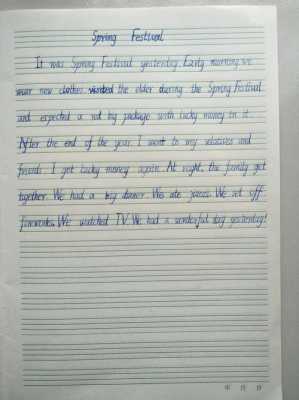 Spring Festival
It was Spring Festival yesterday. Early morning, we
wear new clothes visited the elder during the Spring Festival
and expected a red big package with lucky money in it.
After the end of the year. I went to my relatives and
friends. I got lucky money again. At night, the family got
together. We had a big dinner. We ate We set off
fireworks. We watched TV. We had a wonderful day yesterday!
年 月 日